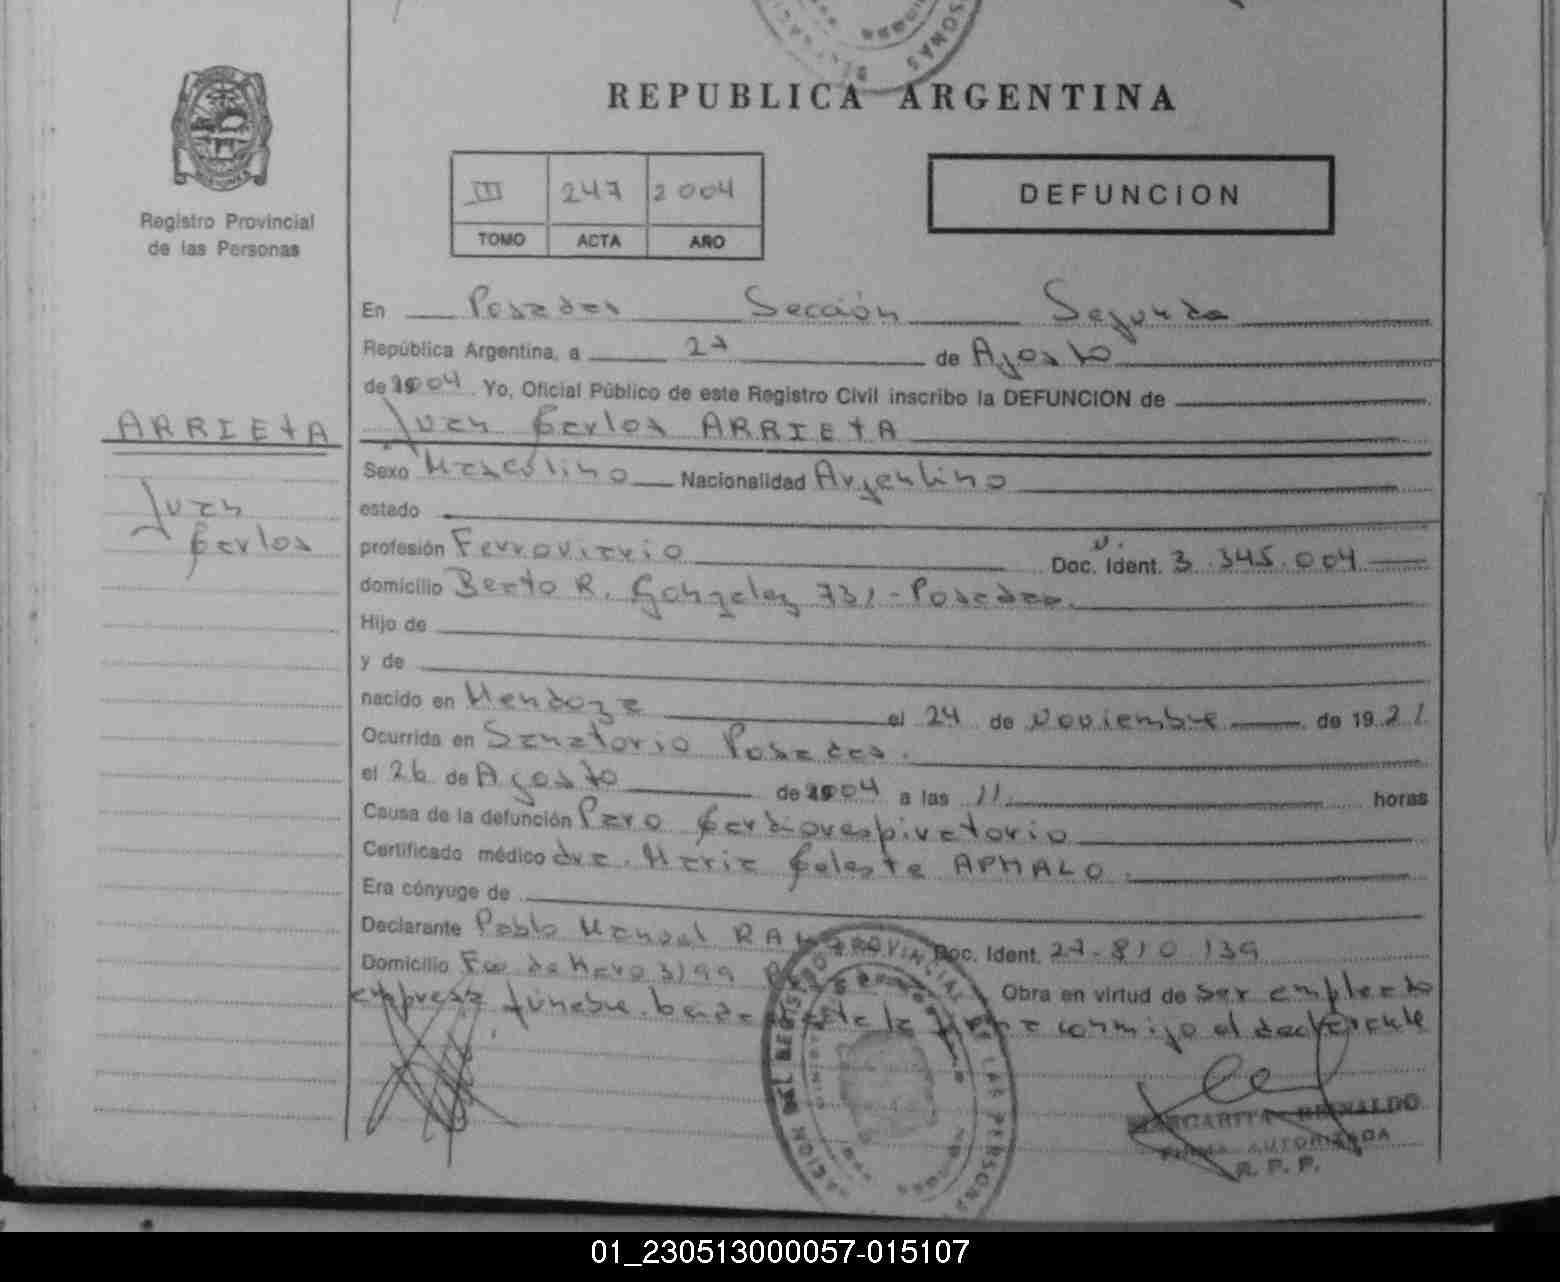 REPUBLICA ARGENTINA
Registro Provincial
de las Personas
III 247 2004
TOMO ACTA AÑO
DEFUNCION
En Posadas Sección Segunda
República Argentina, a 27 de Agosto
de 2004 Yo, Oficial Público de este Registro Civil inscribo la DEFUNCION de
Juan Carlos ARRIETA
ARRIETA
Juan
Carlos
Sexo Masculino Nacionalidad Argentino
estado
profesión Ferroviario Doc. Ident. 3.345.004
domicilio Beato R. Gonzalez 731 - Posadas.
Hijo de
y de
nacido en Mendoza el 24 de Noviembre de 1921
Ocurrida en Sanatorio Posadas.
el 26 de Agosto de 2004 a las 11 horas
Causa de la defunción Paro Cardiorespiratorio
Certificado médico dra. Maria Celeste APHALO.
Era cónyuge de
Declarante Pablo Manuel Doc. Ident. 27.810.139
Domicilio Fco. de Haro 3199 Obra en virtud de ser empleado
empresa fúnebre. la firma conmigo el declarante
REGISTRO PROVINCIAL DE LAS PERSONAS
MARGARITA REINALDO
FIRMA AUTORIZADA
R. P. P.
01_230513000057-015107